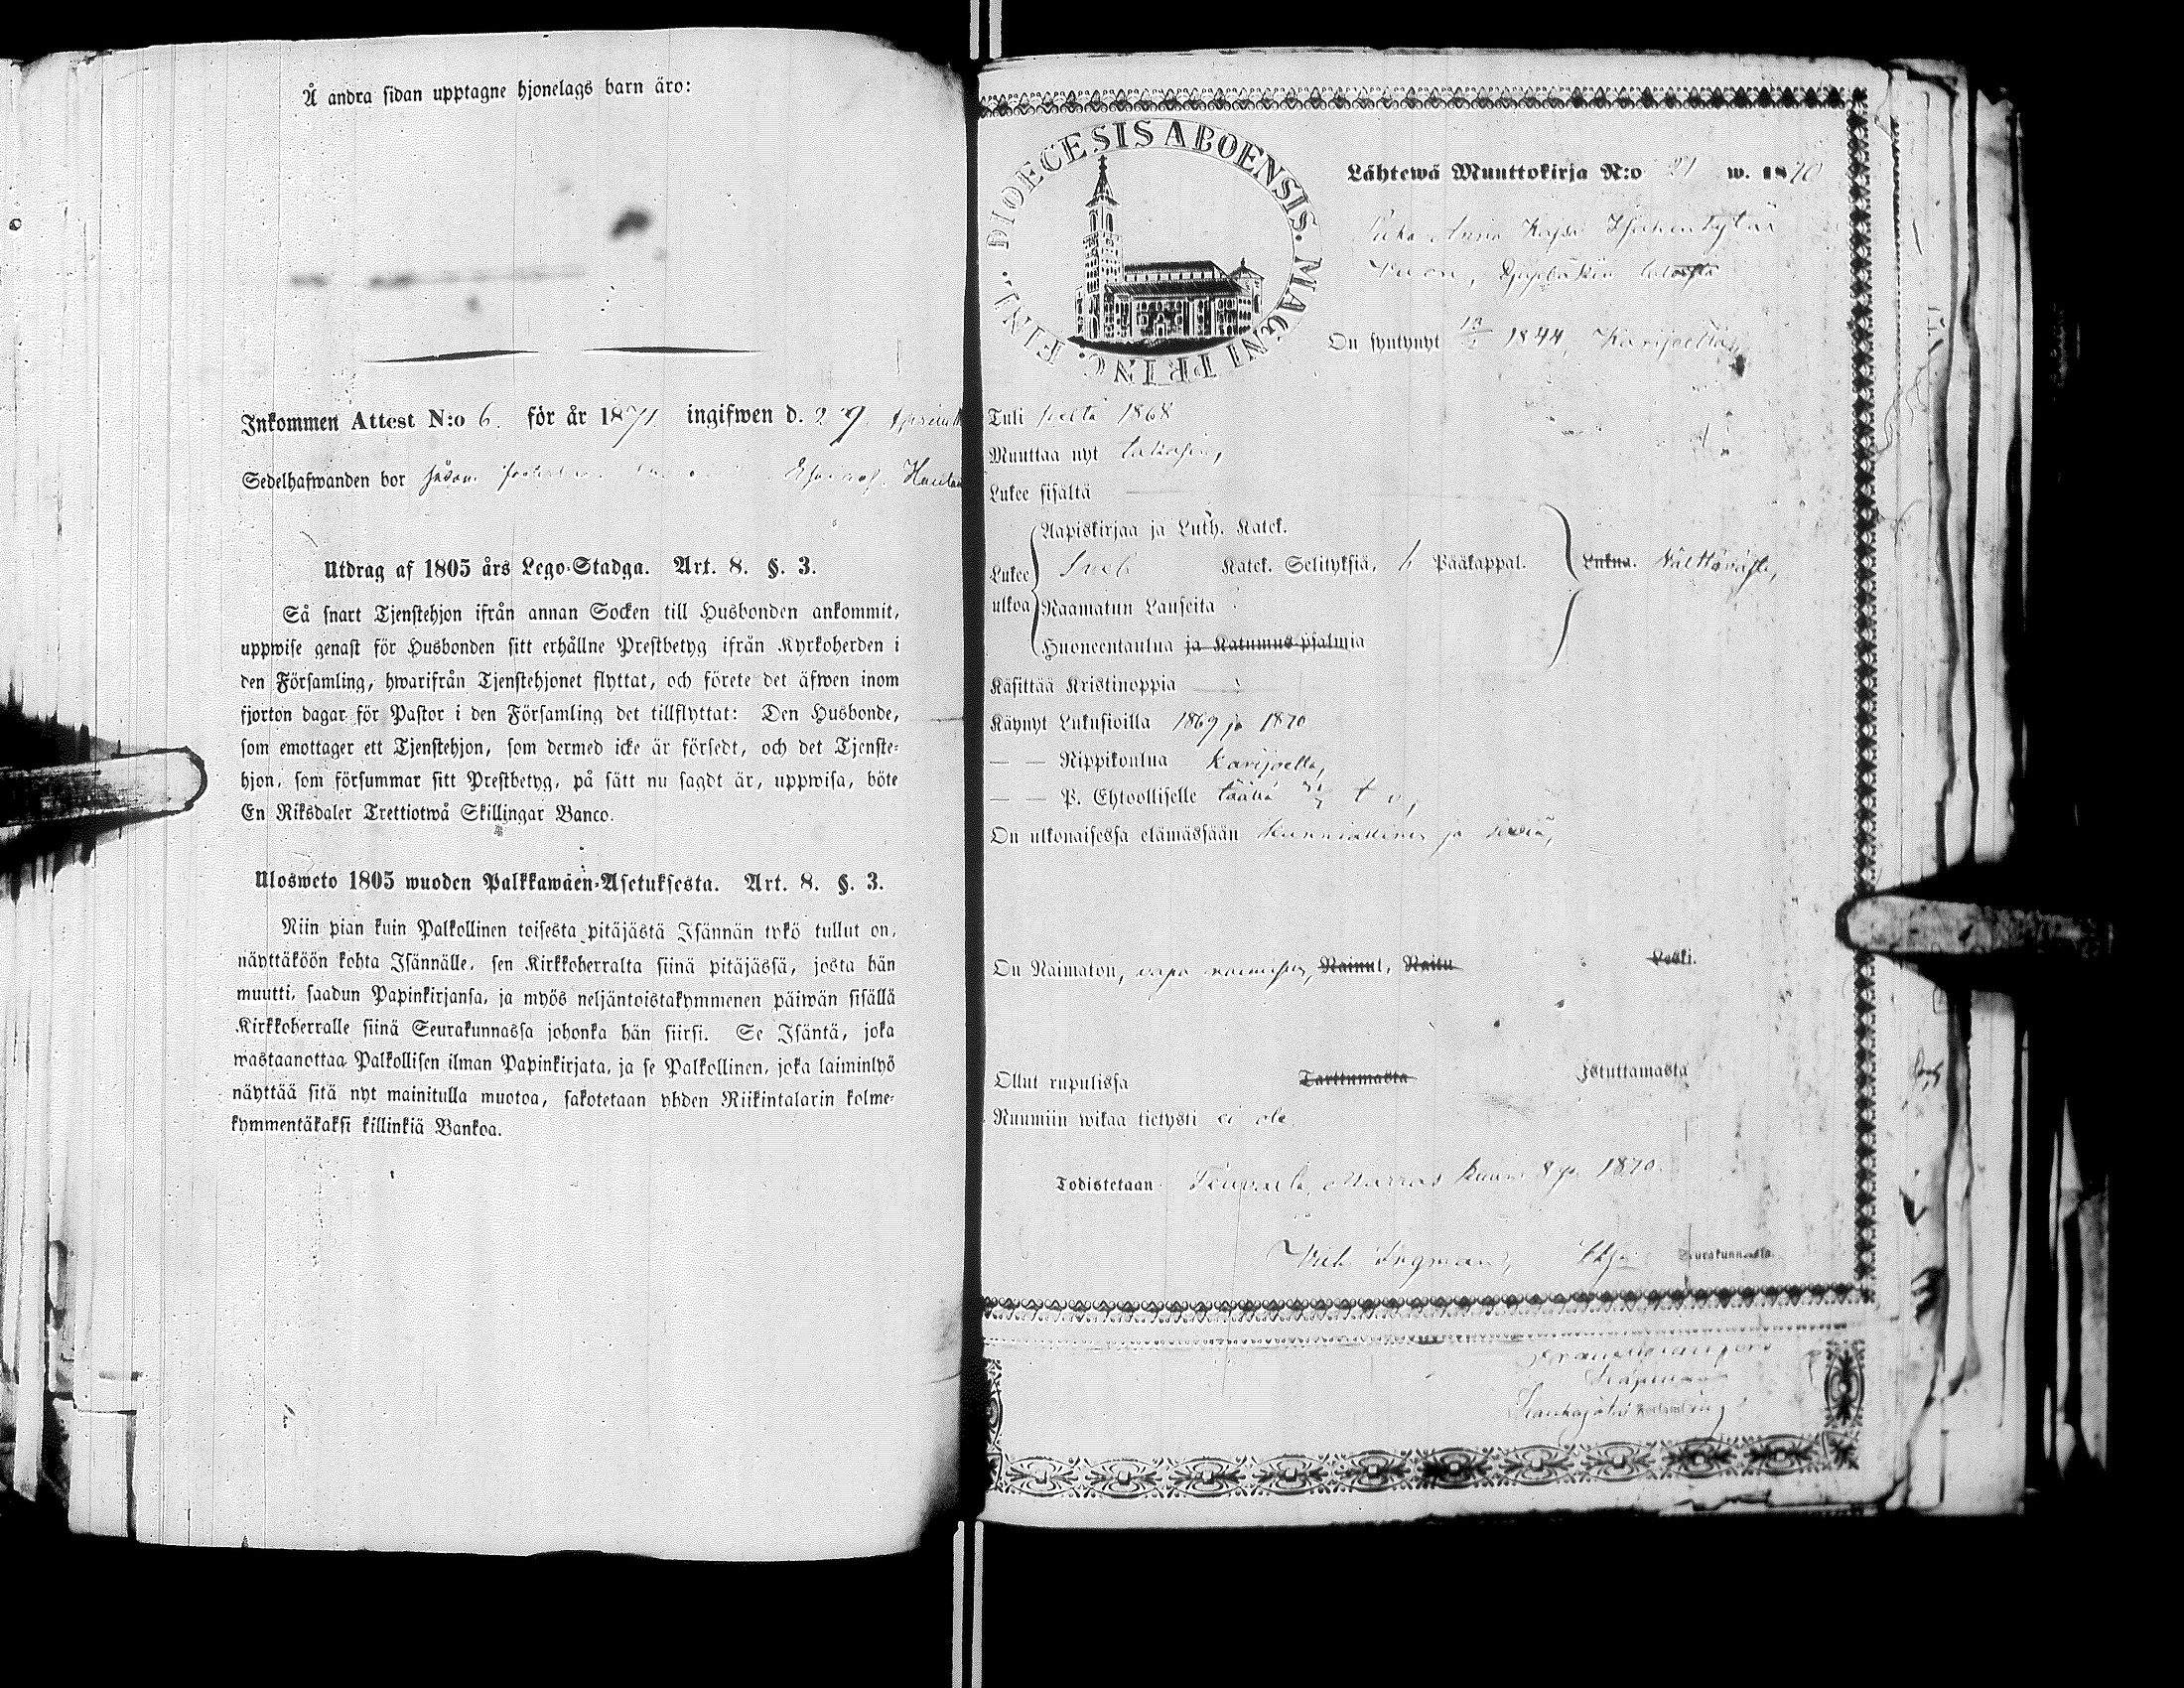 Å andra sidan upptagne hjonelags barn äro:
Inkommen Attest N:o 6. för år 1871 ingifwen d. 29
Sedelhafwanden bor
Utdrag af 1805 års Lego-Stadga. Art. 8. §. 3.
Så snart Tjenstehjon ifrån annan Socken till Husbonden ankommit,
uppwise genast för Husbonden sitt erhållne Prestbetyg ifrån Kyrkoherden i
den Församling, hwarifrån Tjenstehjonet flyttat, och förete det äfwen inom
fjorton dagar för Pastor i den Församling det tillflyttat: Den Husbonde,
som emottager ett Tjenstehjon, som dermed icke är försedt, och det Tjenste-
hjon, som försummar sitt Prestbetyg, på sätt nu sagdt är, uppwisa, böte
En Riksdaler Trettiotwå Skillingar Banco.
Ulosweto 1805 wuoden Palkkawäen-Asetuksesta. Art. 8. §. 3.
Niin pian kuin Palkollinen toisesta pitäjästä Isännän tykö tullut on,
näyttäköön kohta Isännälle, sen Kirkkoherralta siinä pitäjässä, josta hän
muutti, saadun Papinkirjansa, ja myös neljäntoistakymmenen päiwän sisällä
Kirkkoherralle siinä Seurakunnassa johonka hän siirsi. Se Isäntä, joka
wastaanottaa Palkollisen ilman Papinkirjata, ja se Palkollinen, joka laiminlyö
näyttää sitä nyt mainitulla muotoa, sakotetaan yhden Riikintalarin kolme-
kymmentäkaksi killinkiä Bankoa.
DIOECESIS ABOENSIS. MAGNI PRINC. FINL.
Lähtewä Muuttokirja N:o 21 w. 1870
Piika Anna Kajsa
On syntynyt 1844, Karijoella
Tuli sieltä 1868
Muuttaa nyt takasin,
Lukee sisältä
Aapiskirjaa ja Luth. Katek.
Lukee Katek. Selityksiä, Pääkappal. Lukua. Välttäväst,
ulkoa Raamatun Lauseita
Huoneentaulua ja Katumus-psalmia
Käsittää Kristinoppia
Käynyt Lukusioilla 1869 ja 1870
— — Rippikoulua Karijoella,
— — P. Ehtoolliselle täällä
On ulkonaisessa elämässään kunniallinen ja siviä,
On Naimaton, vapa naimisin, Nainut, Naitu Leski.
Ollut rupulissa Tarttumasta Istuttamasta
Ruumiin wikaa tietysti ei ole.
Todistetaan Teuvalla, Marras kuun 8 p. 1870.
Ingman, Seurakunnassa.
Kapellan
Kauhajoki Församling